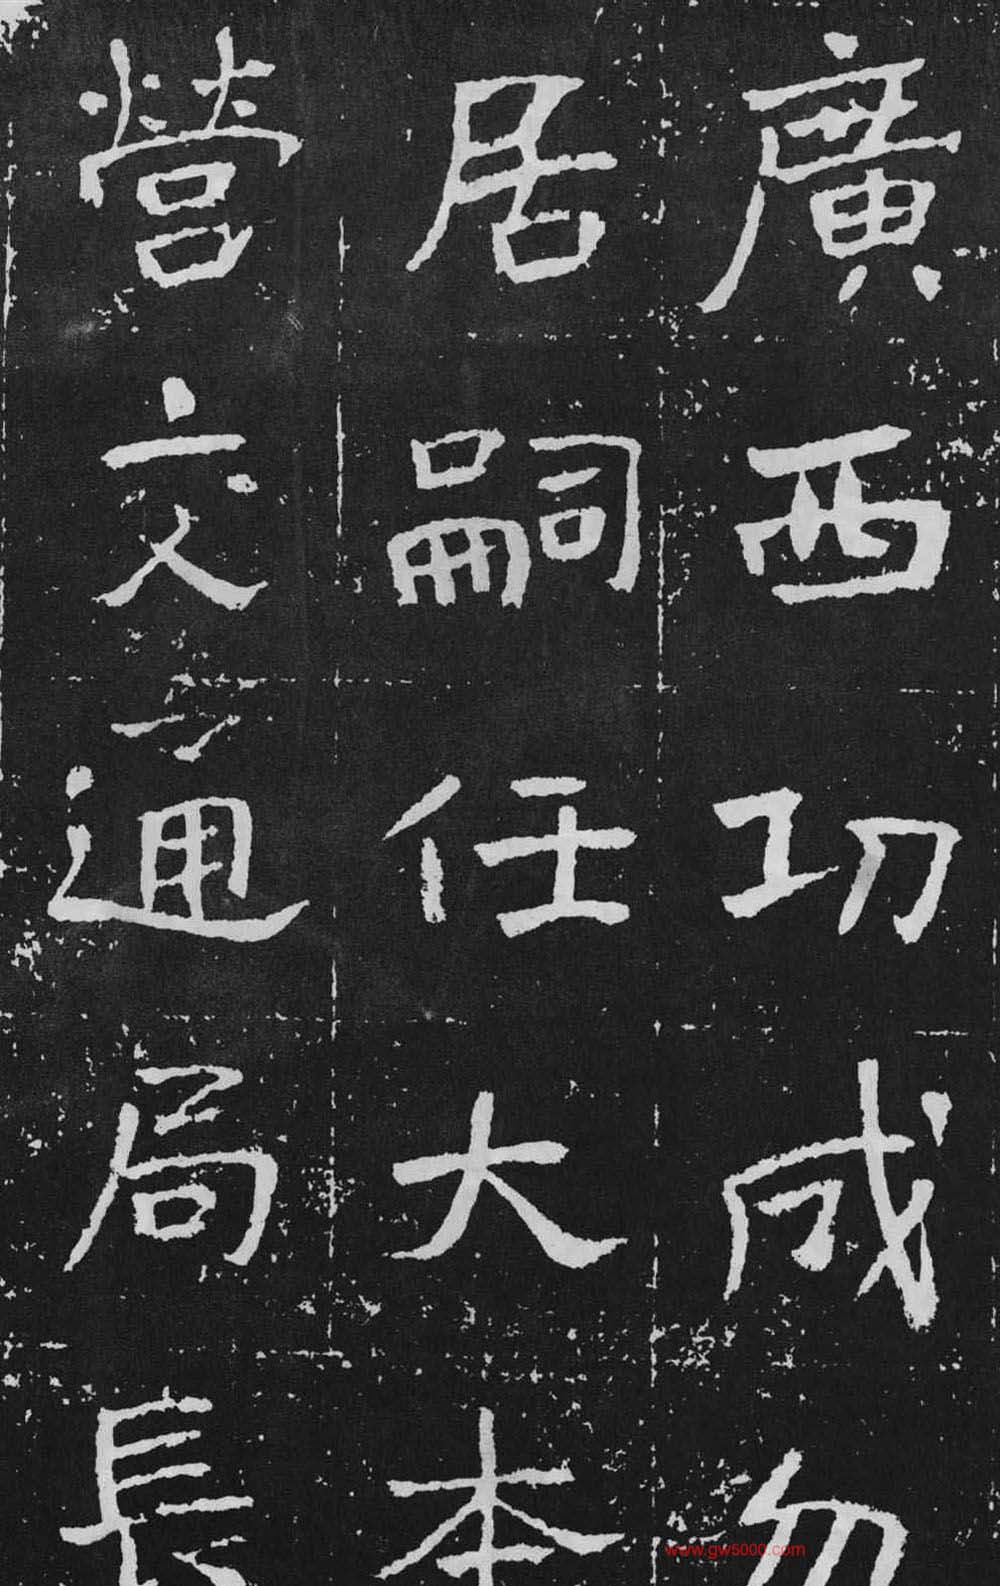 廣西功成勿
居嗣任大本
營交通局長
www.gw5000.com